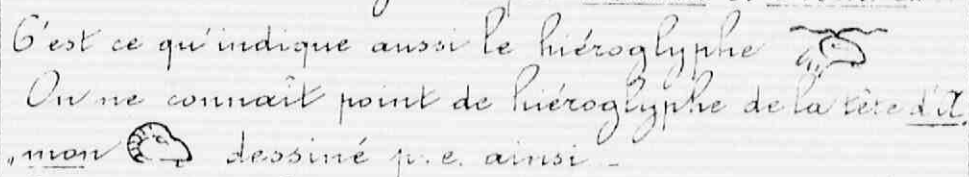 C'est ce qu'indique aussi le hiéroglyphe
On ne connaît point de hiéroglyphe de la tête d'A
mon dessiné p.e. ainsi -